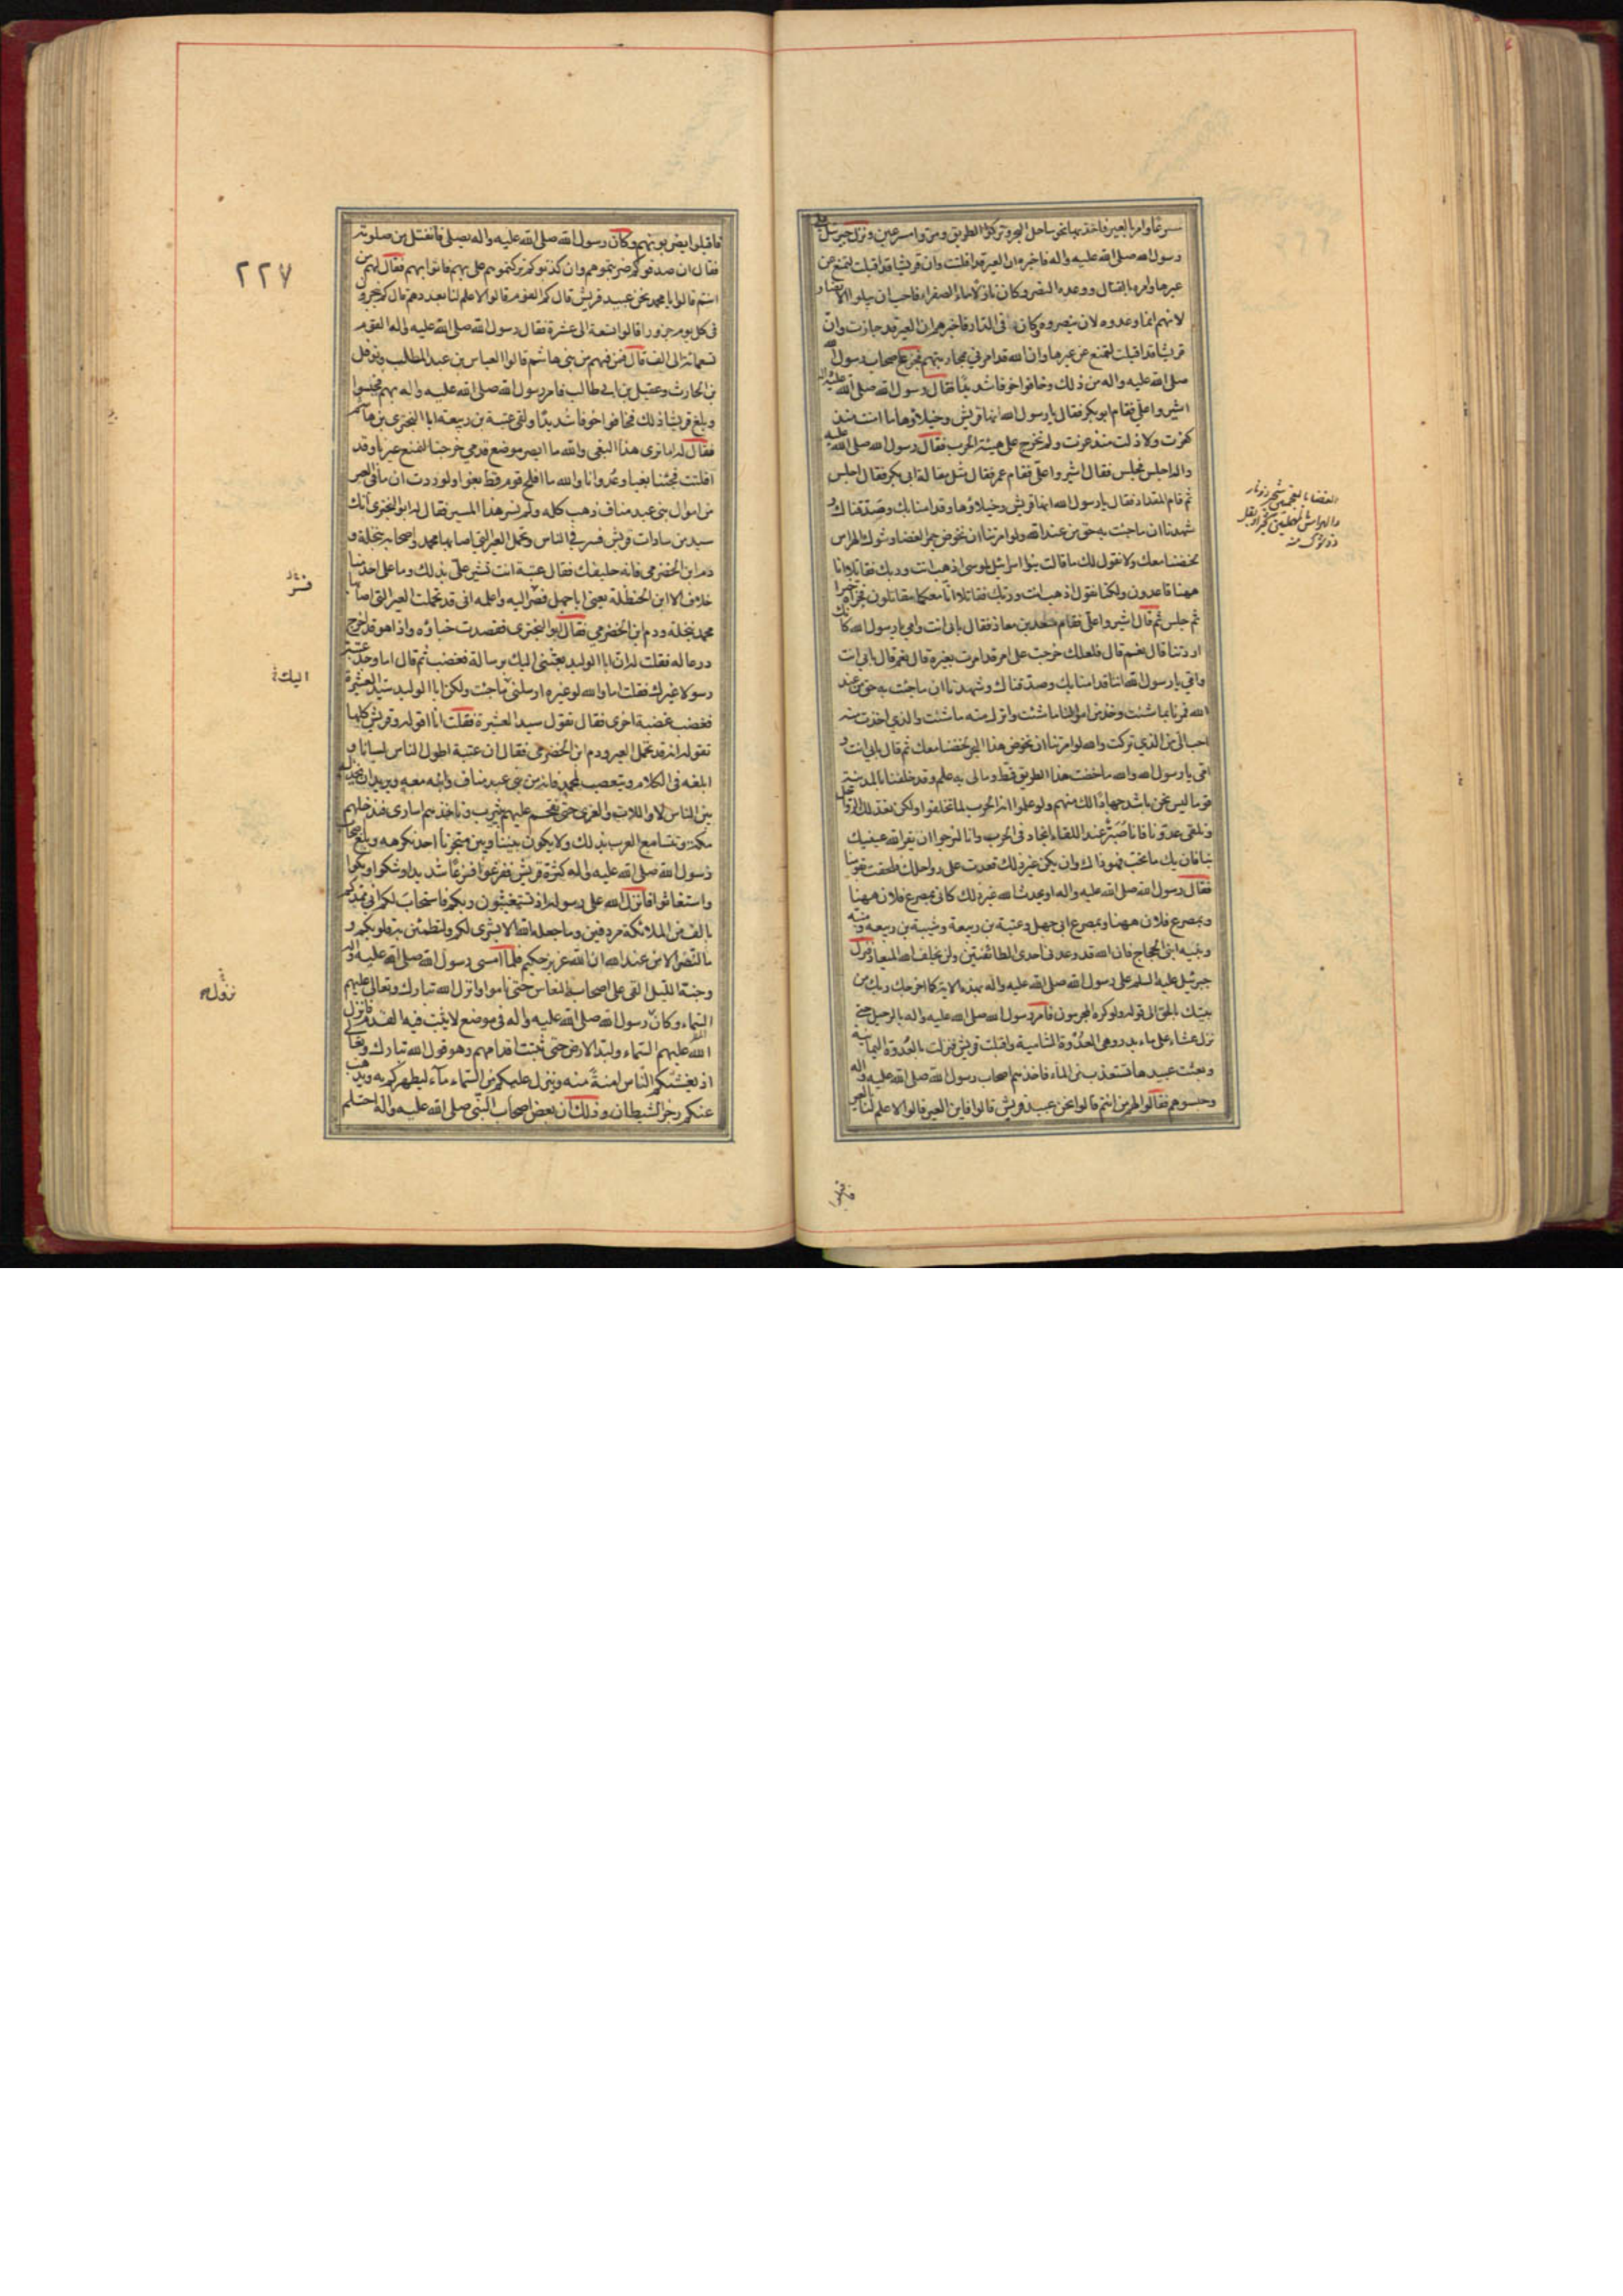 سرعا وامر بالعير فاخذ بها نحو ساحل البحر وتركوا الطريق ومروا مسرعين ونزل جبرئيل على
رسول الله صلى الله عليه واله فاخبره ان العير قد افلتت وان قريشا قد اقبلت لتمنع عن
عيرها وامره بالقتال ووعده النصر وكان نازلا ماء الصفراء فاحب ان يبلوا الانصار
لانهم انما وعدوه لان ينصروه وكان فى الدار فاخبرهم ان العير قد جازت وان
قريشا قد اقبلت لتمنع عن عيرها وان الله قد امرنى بمحاربتهم فجزع اصحاب رسول الله
صلى الله عليه واله من ذلك وخافوا خوفا شديدا فقال رسول الله صلى الله عليه واله
اشيروا علىّ فقام ابو بكر فقال يا رسول الله انها قريش وخيلاؤها ما امنت منذ
كفرت ولا ذلت منذ عزت ولم نخرج على هيئة الحرب فقال رسول الله صلى الله عليه
واله اجلس فجلس فقال اشيروا علىّ فقام عمر فقال مثل مقالة ابى بكر فقال اجلس
ثم قام المقداد فقال يا رسول الله انها قريش وخيلاؤها وقد امنا بك وصدقناك و
شهدنا ان ما جئت به حق من عند الله ولو امرتنا ان نخوض جمر الغضا وشوك الهراس
لخضنا معك ولا نقول لك ما قالت بنوا اسرائيل لموسى اذهب انت وربك فقاتلا انا
ههنا قاعدون ولكنا نقول اذهب انت وربك فقاتلا انّا معكما مقاتلون فجزاه خيرا
ثم جلس ثم قال اشيروا علىّ فقام سعد بن معاذ فقال بابى انت وامى يا رسول الله كانك
اردتنا قال نعم قال فلعلك خرجت على امر قد امرت بغيره قال نعم قال بابى انت
وامى يا رسول الله اننا قد امنا بك وصدقناك وشهدنا ان ما جئت به حق من عند
الله فمرنا بما شئت وخذ من اموالنا ما شئت واترك منه ما شئت والذي اخذت منه
احب الىّ من الذي تركت والله لو امرتنا ان نخوض هذا البحر لخضنا معك ثم قال بابى انت و
امى يا رسول الله والله ما خضت هذا الطريق قط وما لى به علم وقد خلفنا بالمدينة
قوما ليس نحن باشد جهادا لك منهم ولو علموا انه الحرب لما تخلفوا ولكن نعد لك الرواحل
ونلقى عدونا فانا صُبُرٌ عند اللقاء انجاد فى الحرب وانا لنرجوا ان يقر الله عينيك
بنا فان يك ما تحب فهو ذاك وان يكن غير ذلك قعدت على رواحلك فلحقت بقومنا
فقال رسول الله صلى الله عليه واله او يحدث الله غير ذلك كانى بمصرع فلان ههنا
وبمصرع فلان ههنا وبمصرع ابى جهل وعتبة بن ربيعة وشيبة بن ربيعة ومنبه
ونبيه ابنى الحجاج فان الله قد وعدنى احدى الطائفتين ولن يخلف الله الميعاد فنزل
جبرئيل عليه السلم على رسول الله صلى الله عليه واله بهذه الاية كما اخرجك ربك من
بيتك بالحق الى قوله ولو كره المجرمون فامر رسول الله صلى الله عليه واله بالرحيل حتى
نزل عشاء على ماء بدر وهى العدوة الشامية واقبلت قريش فنزلت بالعدوة اليمانية
وبعثت عبيدها تستعذب من الماء فاخذهم اصحاب رسول الله صلى الله عليه واله
وحبسوهم فقالوا لهم من انتم قالوا نحن عبيد قريش قالوا فاين العير قالوا لا علم لنا بالعير
فاقبلوا
٢٢٧
فاقبلوا يضربونهم وكان رسول الله صلى الله عليه واله يصلى فانفتل من صلوته
فقال ان صدقوكم ضربتموهم وان كذبوكم تركتموهم علىّ بهم فاتوا بهم فقال لهم من
انتم قالوا يا محمد نحن عبيد قريش قال كم القوم قالوا لا علم لنا بعددهم قال كم ينحرون
فى كل يوم جزورا قالوا تسعة الى عشرة فقال رسول الله صلى الله عليه واله القوم
تسعمائة الى الف قال فمن فيهم من بنى هاشم قالوا العباس بن عبد المطلب ونوفل
بن الحارث وعقيل بن ابى طالب فامر رسول الله صلى الله عليه واله بهم فحبسوا
وبلغ قريشا ذلك فخافوا خوفا شديدا ولقى عتبة بن ربيعة ابا البخترى بن هاشم
فقال له اما ترى هذا البغى والله ما ابصر موضع قدمى خرجنا لنمنع عيرنا وقد
افلتت فجئنا بغيا وعدوانا والله ما افلح قوم قط بغوا ولوددت ان ما فى العير
من اموال بنى عبد مناف ذهب كله ولم نسر هذا المسير فقال له ابو البخترى انك
سيد من سادات قريش فسر فى الناس وتحمل العير التى اصابها محمد واصحابه بنخلة و
دم ابن الحضرمى فانه حليفك فقال عتبة انت تشير علىّ بذلك وما على احد منا
خلاف الا ابن الحنظلة يعنى ابا جهل فصر اليه واعلمه انى قد تحملت العير التى اصابها
محمد بنخلة ودم ابن الحضرمى فقال ابو البخترى فقصدت خباؤه واذا هو قد اخرج
درعا له فقلت له ان ابا الوليد بعثنى اليك برسالة فغضب ثم قال اما وجد عتبة
رسولا غيرك فقلت اما والله لو غيره ارسلنى ما جئت ولكن ابا الوليد سيد العشيرة
فغضب غضبة اخرى فقال تقول سيد العشيرة فقلت انا اقوله وقريش كلها
تقوله انه قد تحمل العير ودم ابن الحضرمى فقال ان عتبة اطول الناس لسانا و
ابلغه فى الكلام ويتعصب لمحمد فانه من بنى عبد مناف وابنه معه ويريد ان يخذله
بين الناس لا واللات والعزى حتى نقحم عليهم بيثرب وناخذهم اسارى فندخلهم
مكة وتتسامع العرب بذلك ولا يكون بيننا وبين متجرنا احد نكرهه وبلغ اصحاب
رسول الله صلى الله عليه واله كثرة قريش ففزعوا فزعا شديدا وشكوا وبكوا
واستغاثوا فانزل الله على رسوله اذ تستغيثون ربكم فاستجاب لكم انى ممدكم
بالف من الملائكة مردفين وما جعله الله الا بشرى لكم ولتطمئن به قلوبكم و
ما النصر الا من عند الله ان الله عزيز حكيم فلما امسى رسول الله صلى الله عليه واله
وجنه الليل القى على اصحابه النعاس حتى ناموا وانزل الله تبارك وتعالى عليهم
السماء وكان رسول الله صلى الله عليه واله فى موضع لا يثبت فيه القدم فانزل
الله عليهم السماء ولبد الارض حتى ثبتت اقدامهم وهو قول الله تبارك وتعالى
اذ يغشيكم النعاس امنة منه وينزل عليكم من السماء ماء ليطهركم به ويذهب
عنكم رجز الشيطان وذلك ان بعض اصحاب النبى صلى الله عليه واله احتلم
اليك